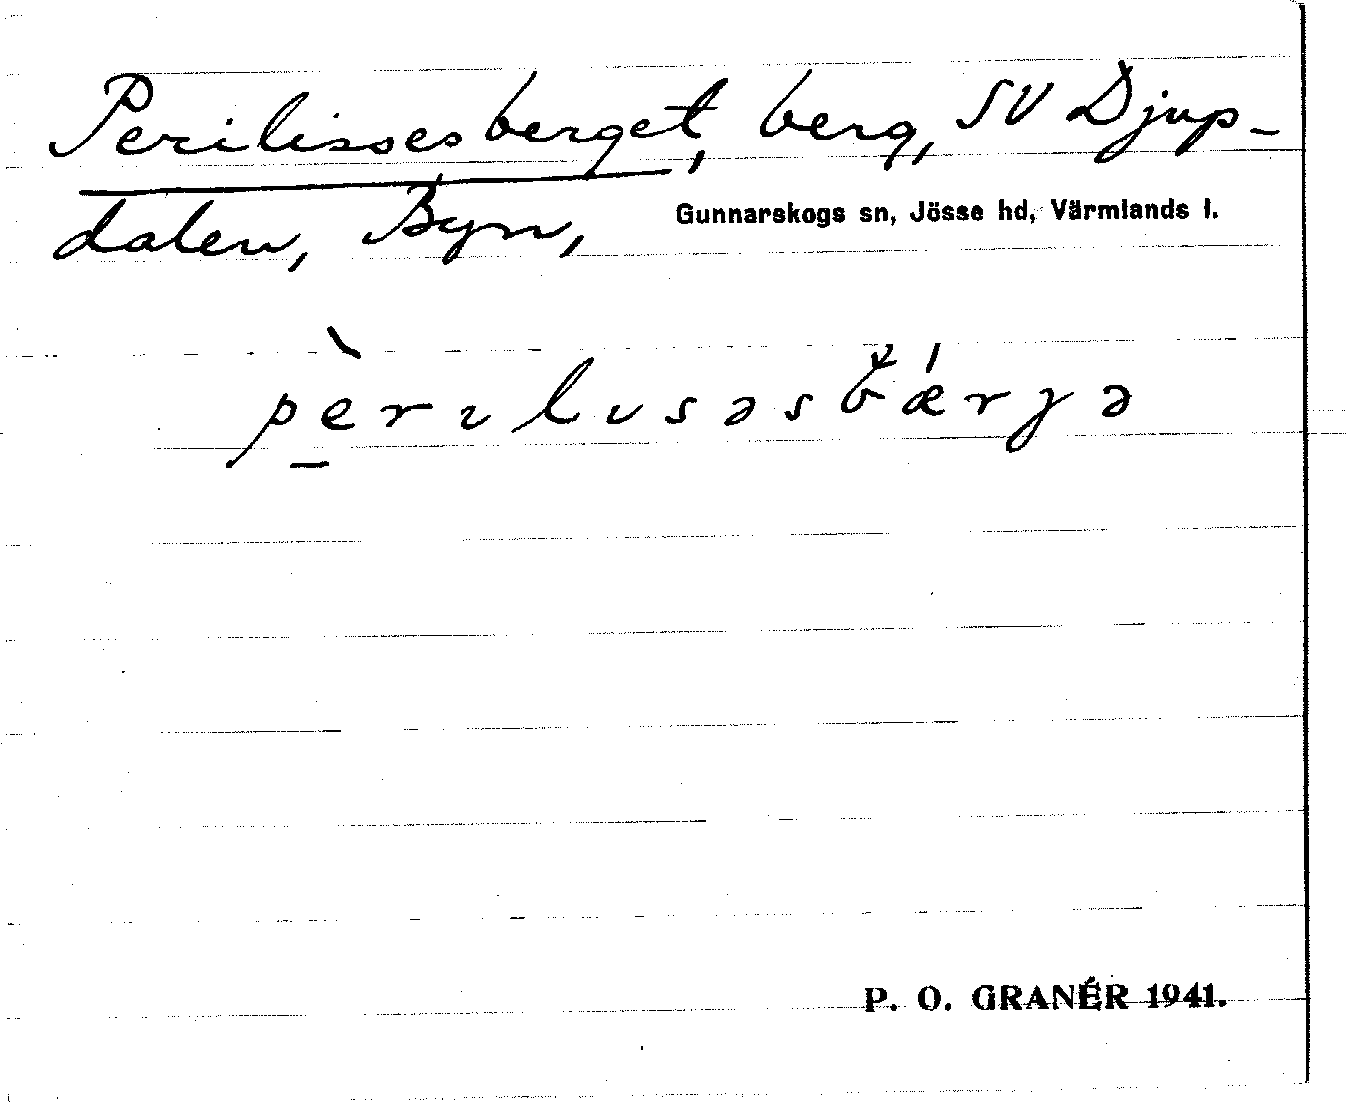 Perilissesberget, berg, SV Djup-
dalen, Byn, Gunnarskogs sn, Jösse hd, Värmlands l.
pèrɩlɩsəsbǽrɟə
P. O. GRANÉR 1941.